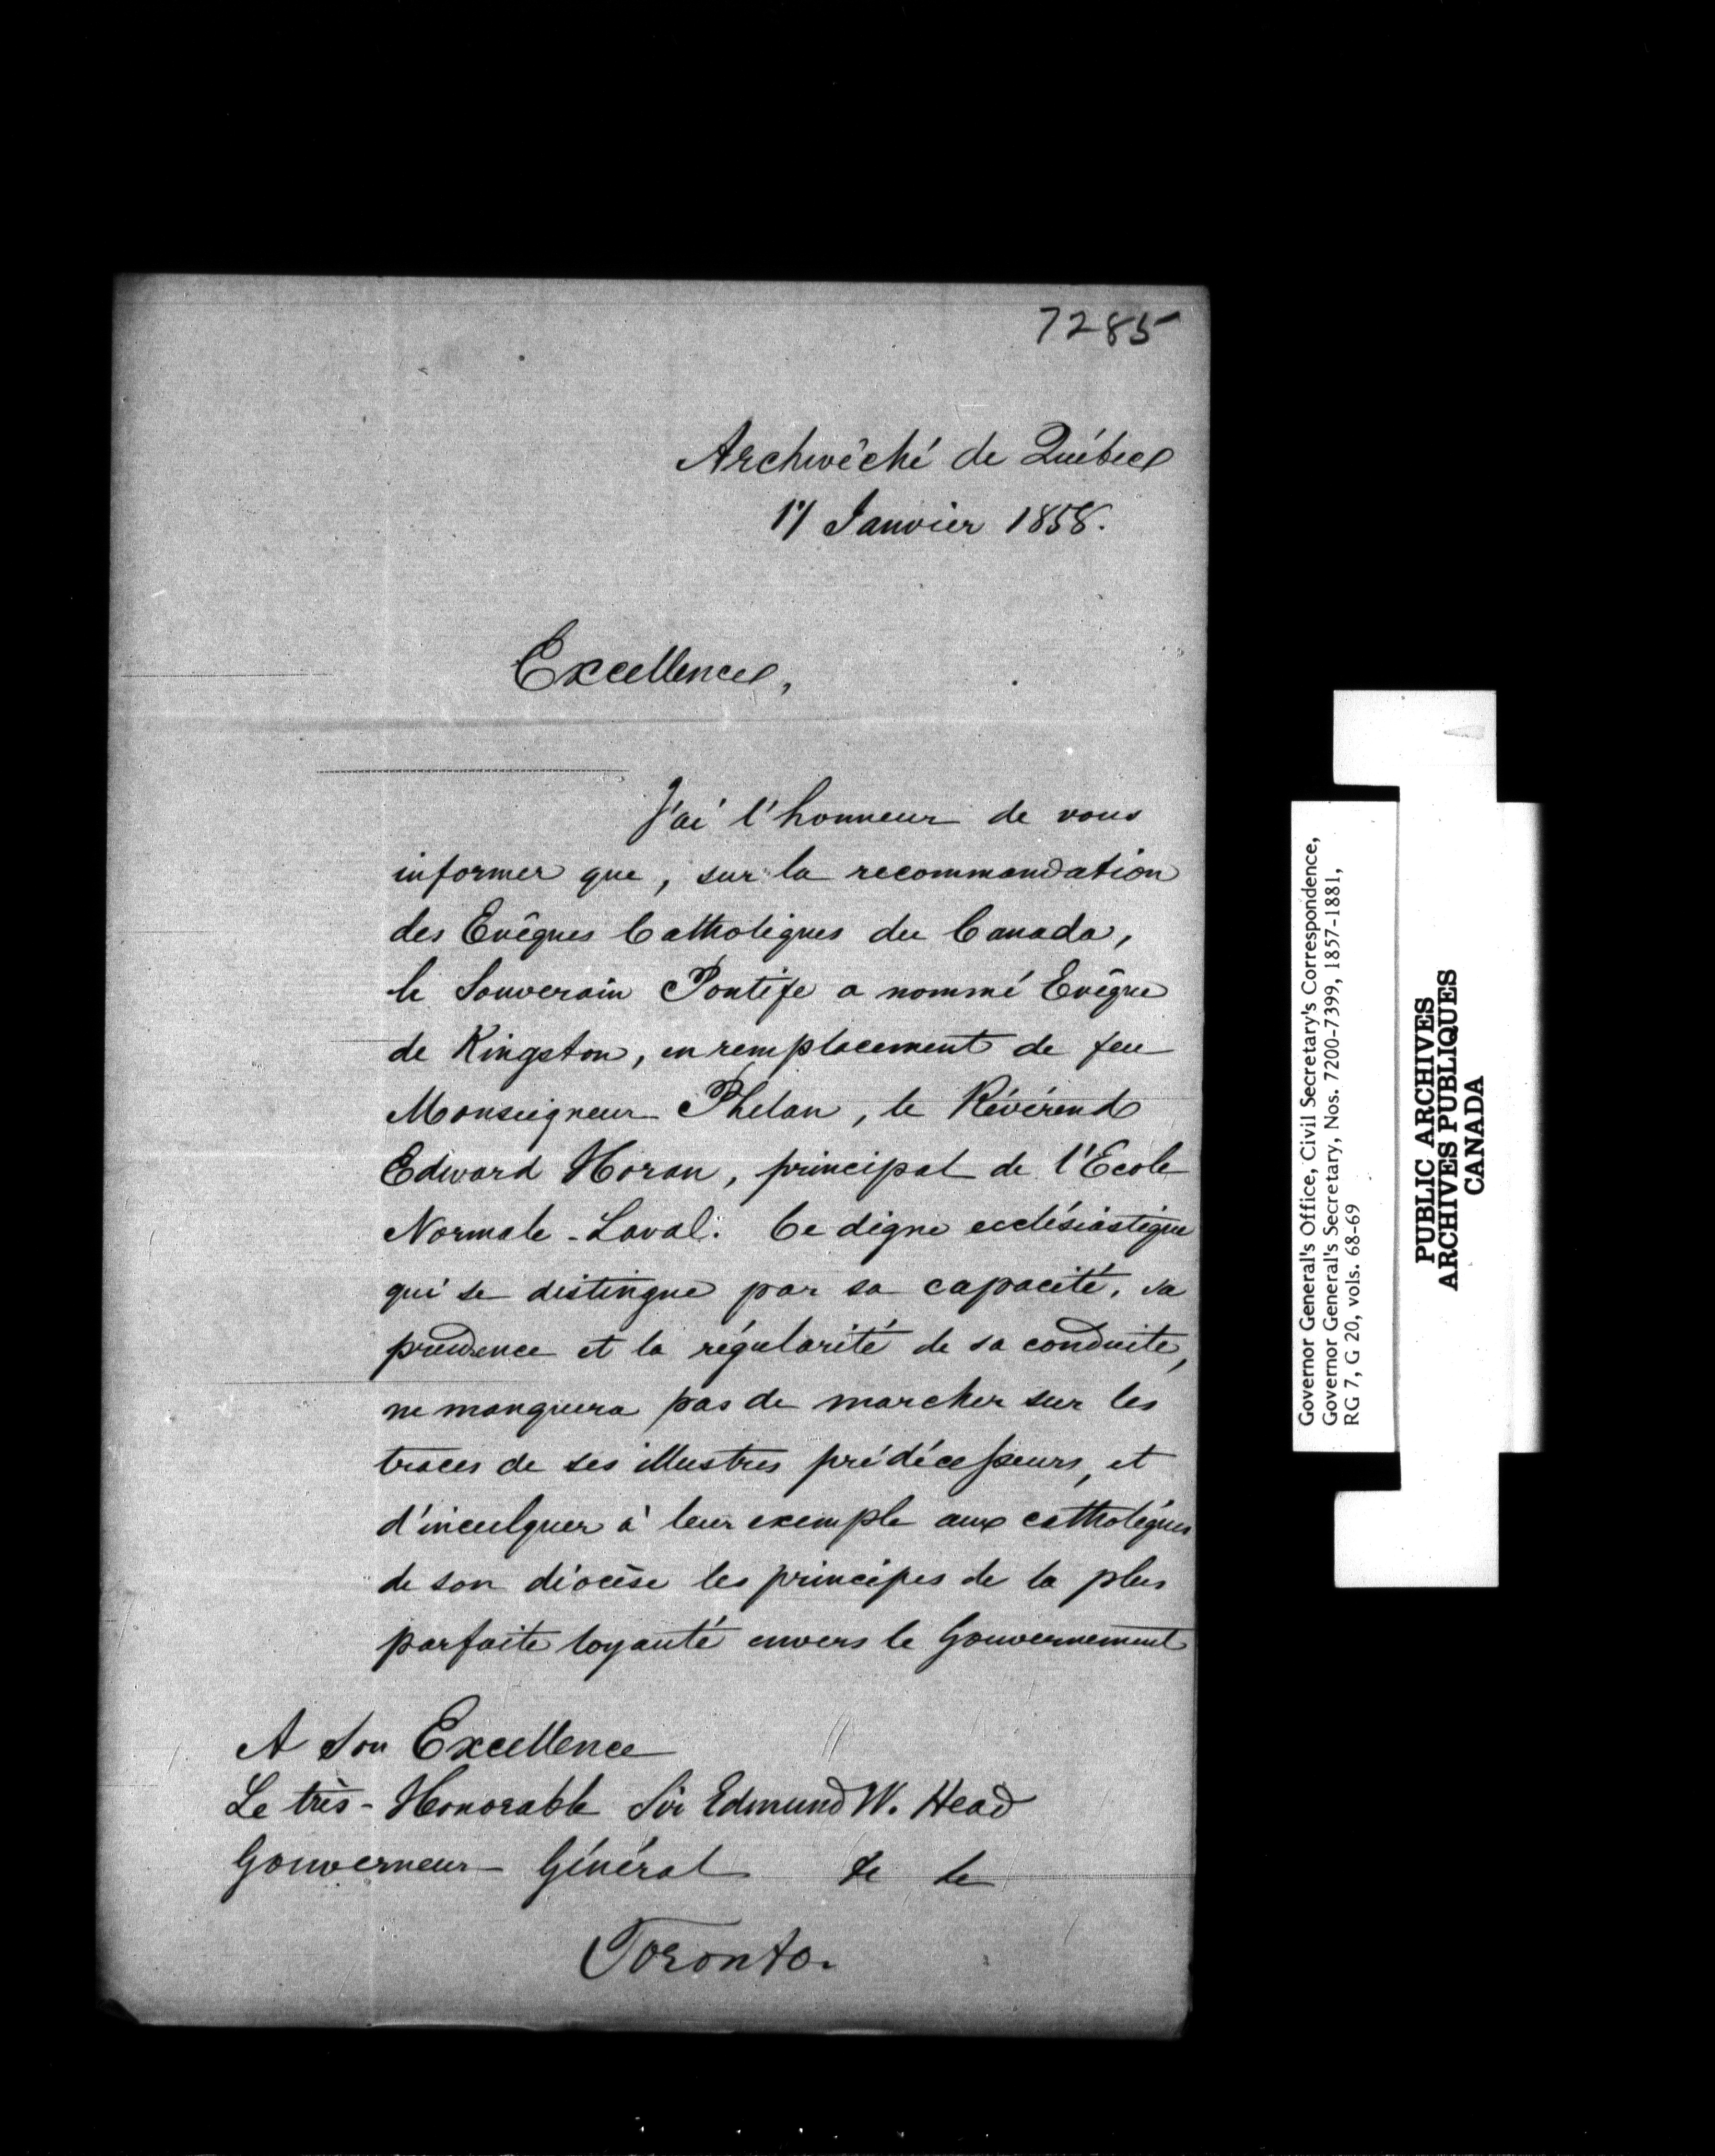 7285
Archevêché de Québec
17 Janvier 1858.
Excellence,
J'ai l'honneur de vous
informer que, sur la recommandation
des Evêques Catholiques du Canada,
le Souverain Pontife a nommé Evêque
de Kingston, en remplacement de feu
Monseigneur Phelan, le Révérend
Edward Horan, principal de l'Ecole
Normale-Laval. Ce digne ecclésiastique
qui se distingue par sa capacité, sa
prudence et la régularité de sa conduite,
ne manquera pas de marcher sur les
traces de ses illustres prédécesseurs, et
d'inculquer à leur exemple aux catholiques
de son diocèse les principes de la plus
parfaite loyauté envers le Gouvernement
A Son Excellence
Le très-Honorable Sir Edmund W. Head
Gouverneur Général &c &c
Toronto.
Governor General's Office, Civil Secretary's Correspondence,
Governor General's Secretary, Nos. 7200-7399, 1857-1881,
RG 7, G 20, vols. 68-69
PUBLIC ARCHIVES
ARCHIVES PUBLIQUES
CANADA